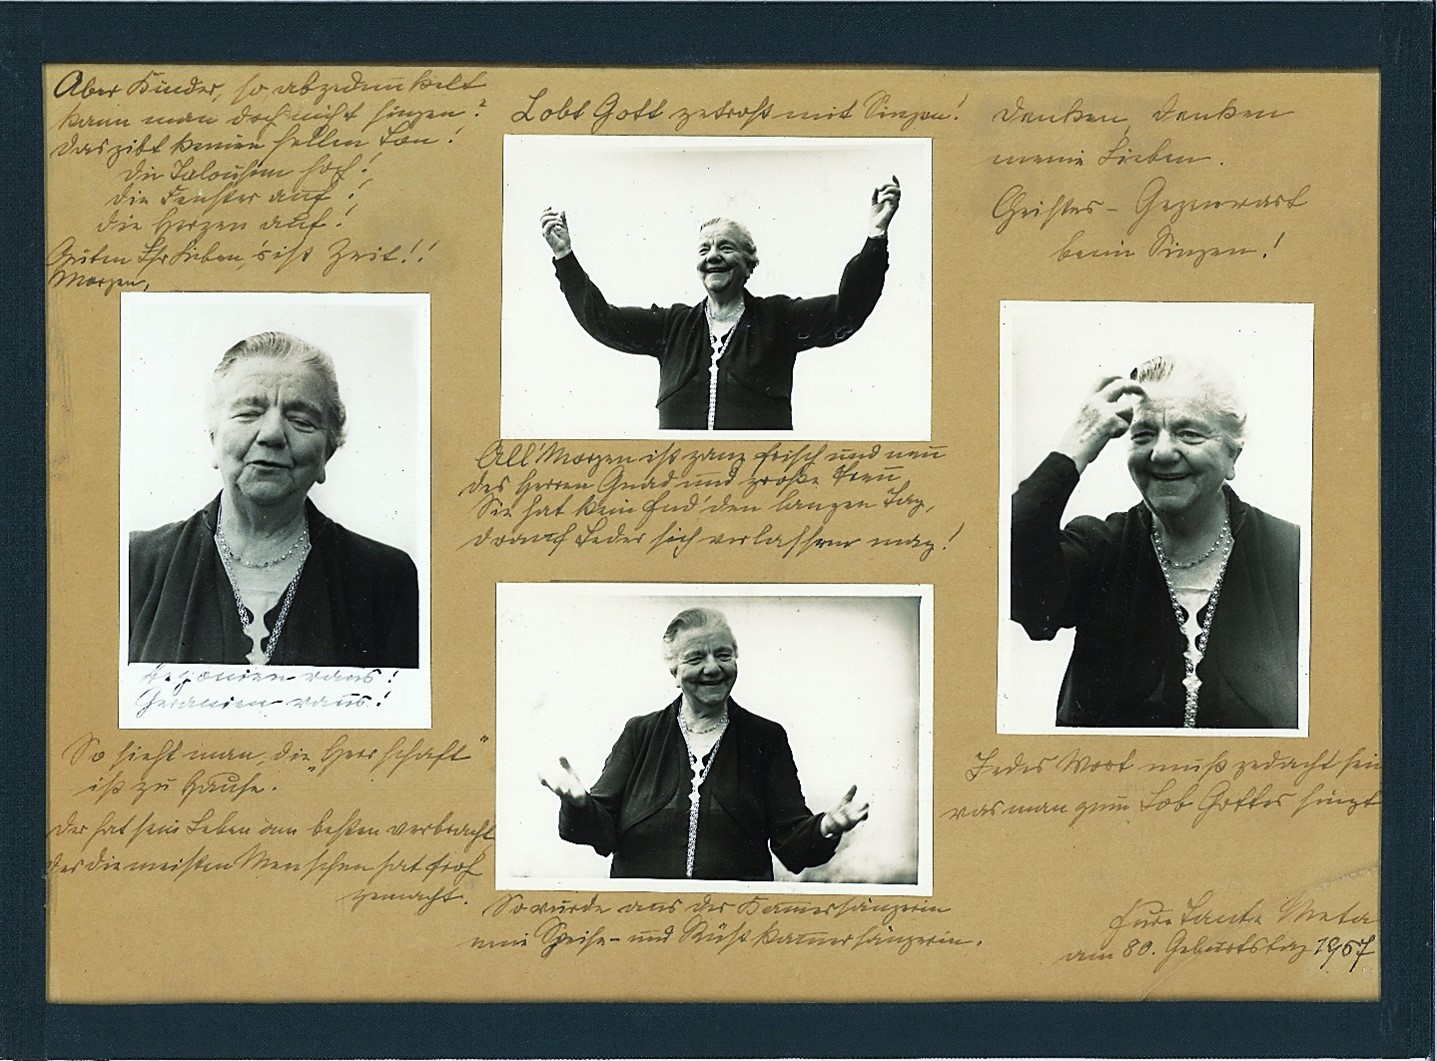 Aber Kinder, so abgedunkelt
kann man doch nicht singen?
das gibt keinen hellen Ton!
die Jalousien hoch!
die Fenster auf!
die Herzen auf!
Guten Ihr Lieben, 's ist Zeit!!
Morgen,
Begonien raus!
Geranien raus!
So sieht man, die „Herrschaft"
ist zu Hause.
der hat sein Leben am besten verbracht,
der die meisten Menschen hat froh
gemacht.
Lobt Gott getrost mit Singen!
All' Morgen ist ganz frisch und neu
des Herren Gnad und große Treu
Sie hat kein End' den langen Tag,
drauf Jeder sich verlassen mag!
So wurde aus der Kammersängerin
eine Speise- und Rüstkammersängerin.
Denken, denken
meine Lieben.
Geistes-Gegenwart
beim Singen!
Jedes Wort muß gedacht sein
was man zum Lob Gottes singt
Eure Tante Meta
am 80. Geburtstag 1967